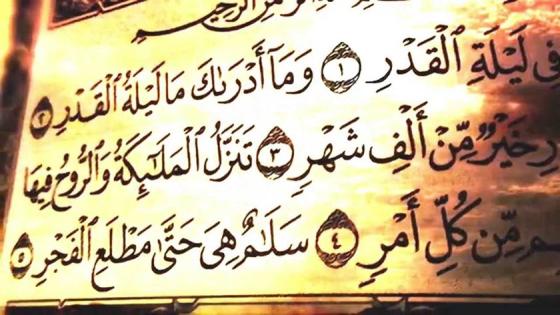 ٱلرَّحِيمِ
فِى لَيْلَةِ ٱلْقَدْرِ ١ وَمَآ أَدْرَىٰكَ مَا لَيْلَةُ ٱلْقَدْرِ ٢
رِ خَيْرٌ مِّنْ أَلْفِ شَهْرٍ ٣ تَنَزَّلُ ٱلْمَلَـٰٓئِكَةُ وَٱلرُّوحُ فِيهَا
م مِّن كُلِّ أَمْرٍ ٤ سَلَـٰمٌ هِىَ حَتَّىٰ مَطْلَعِ ٱلْفَجْرِ ٥